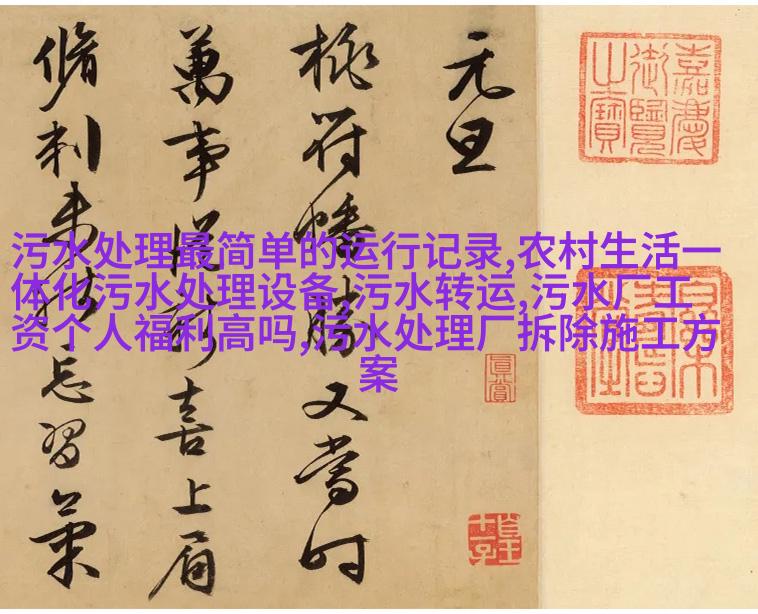 污水处理最简单的运行记录,农村生活一
体化污水处理设备,污水转运,污水厂工
资个人福利高吗,污水处理厂拆除施工方
案
嘉慶御覽之寶
元旦
桃符幡勝又當時
萬事從新喜上眉
脩刺未忘習
真賞